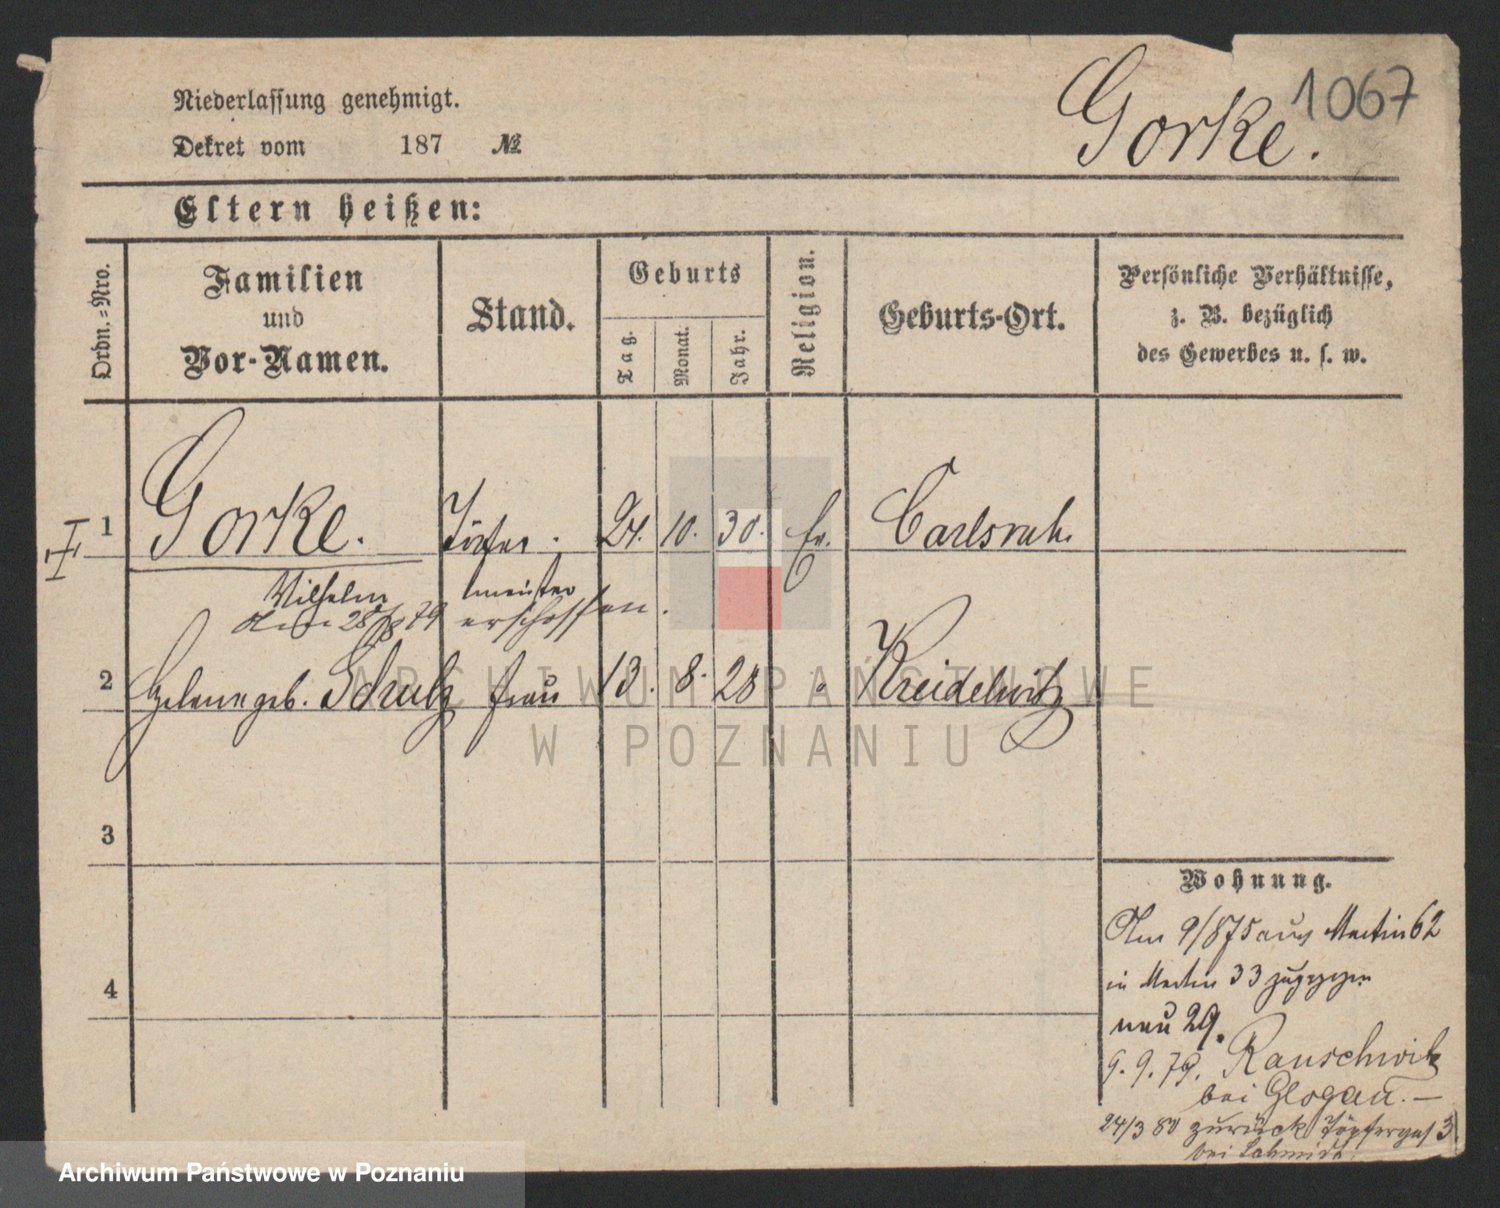 Niederlassung genehmigt.
Dekret vom 187 №
Gorke.
1067
Eltern heißen:
Ordn.=Nro.
Familien
und
Vor-Namen.
Stand.
Geburts
Tag.
Monat.
Jahr.
Religion.
Geburts-Ort.
Persönliche Verhältnisse,
z. B. bezüglich
des Gewerbes u. s. w.
I 1 Gorke. Töpfer 24. 10. 30. Ev. Carlsruh.
Wilhelm meister
Am 28/8 79 erschossen.
2 Helene geb. Schulz Frau 13. 8. 28 Kreidelwitz
3
4
Wohnung.
Am 9/875 aus Martin 62
in Martin 33 zugezogen
neu 29.
9. 9. 79. Rauschwitz
bei Glogau. —
24/3 80 zurück Töpfergas 3.
bei Schmidt
ARCHIWUM PAŃSTWOWE
W POZNANIU
Archiwum Państwowe w Poznaniu